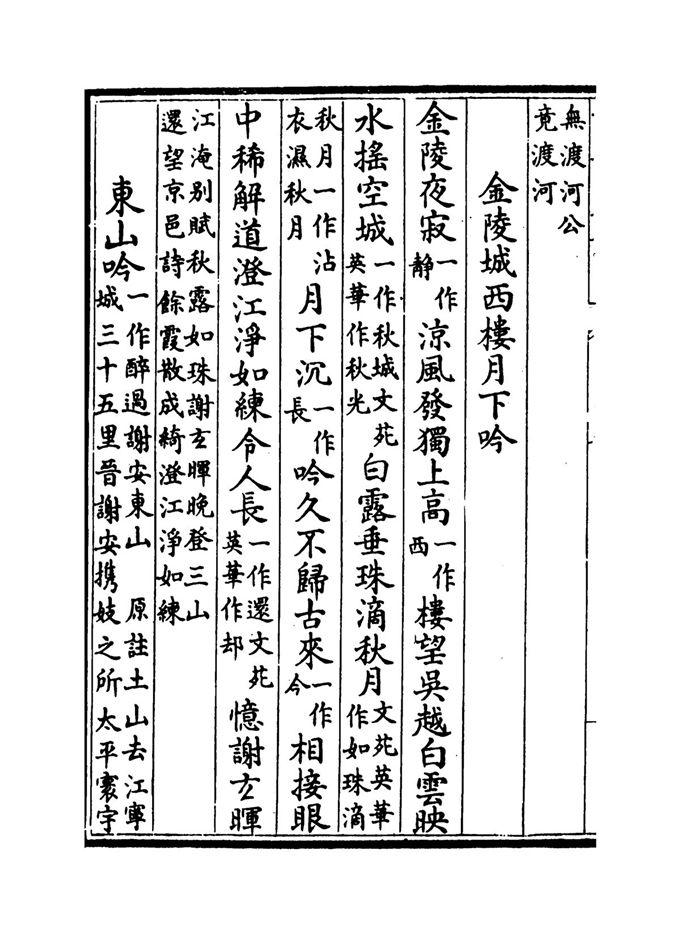 無渡河公
竟渡河
金陵城西樓月下吟
金陵夜寂一作靜涼風發獨上高一作西樓望吳越白雲映
水搖空城一作秋城文苑英華作秋光白露垂珠滴秋月文苑英華作如珠滴
秋月一作沾衣濕秋月月下沉一作長吟久不歸古來一作今相接眼
中稀解道澄江淨如練令人長一作還文苑英華作却憶謝玄暉
江淹别賦秋露如珠謝玄暉晚登三山
還望京邑詩餘霞散成綺澄江淨如練
東山吟一作醉過謝安東山 原註土山去江寧城三十五里晉謝安攜妓之所太平寰宇